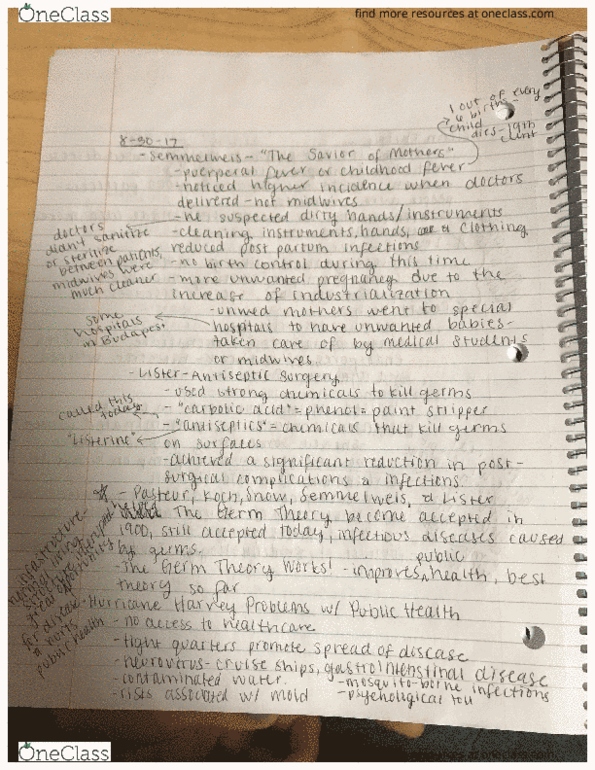 OneClass
find more resources at oneclass.com
1 out of every
births -
child
dies - 19th
cent
8-30-17
- Semmelweis - "The Savior of Mothers"
- puerperal fever or childhood fever
- noticed higher incidence when doctors
delivered - not midwives
- he suspected dirty hands/instruments
- cleaning instruments, hands, & clothing
reduced post partum infections
doctors
didn't sanitize
or sterilize
between patients,
midwives were
much cleaner
- no birth control during this time
- more unwanted pregnancy due to the
increase of industrialization
- unwed mothers went to special
hospitals to have unwanted babies -
taken care of by medical students
or midwives
some
hospitals
in Budapest
- Lister - Antiseptic Surgery
- used strong chemicals to kill germs
- "carbolic acid" = phenol = paint stripper
- "antiseptics" = chemicals that kill germs
on surfaces
called this
today
"Listerine"
- achieved a significant reduction in post-
surgical complications & infections
- Pasteur, Koch, Snow, Semmelweis, & Lister
The Germ Theory became accepted in
1900, still accepted today, infectious diseases caused
by germs.
- The Germ Theory Works! - improves public health, best
theory so far
infrastructure -
great
for disease
public health
- Hurricane Harvey Problems w/ Public Health
- no access to healthcare
- tight quarters promote spread of disease
- neuroverus - cruise ships, gastrointenstinal disease
- contaminated water. - mosquito-borne infections
- risks associated w/ mold - psychological toll
OneClass
find more resources at oneclass.com